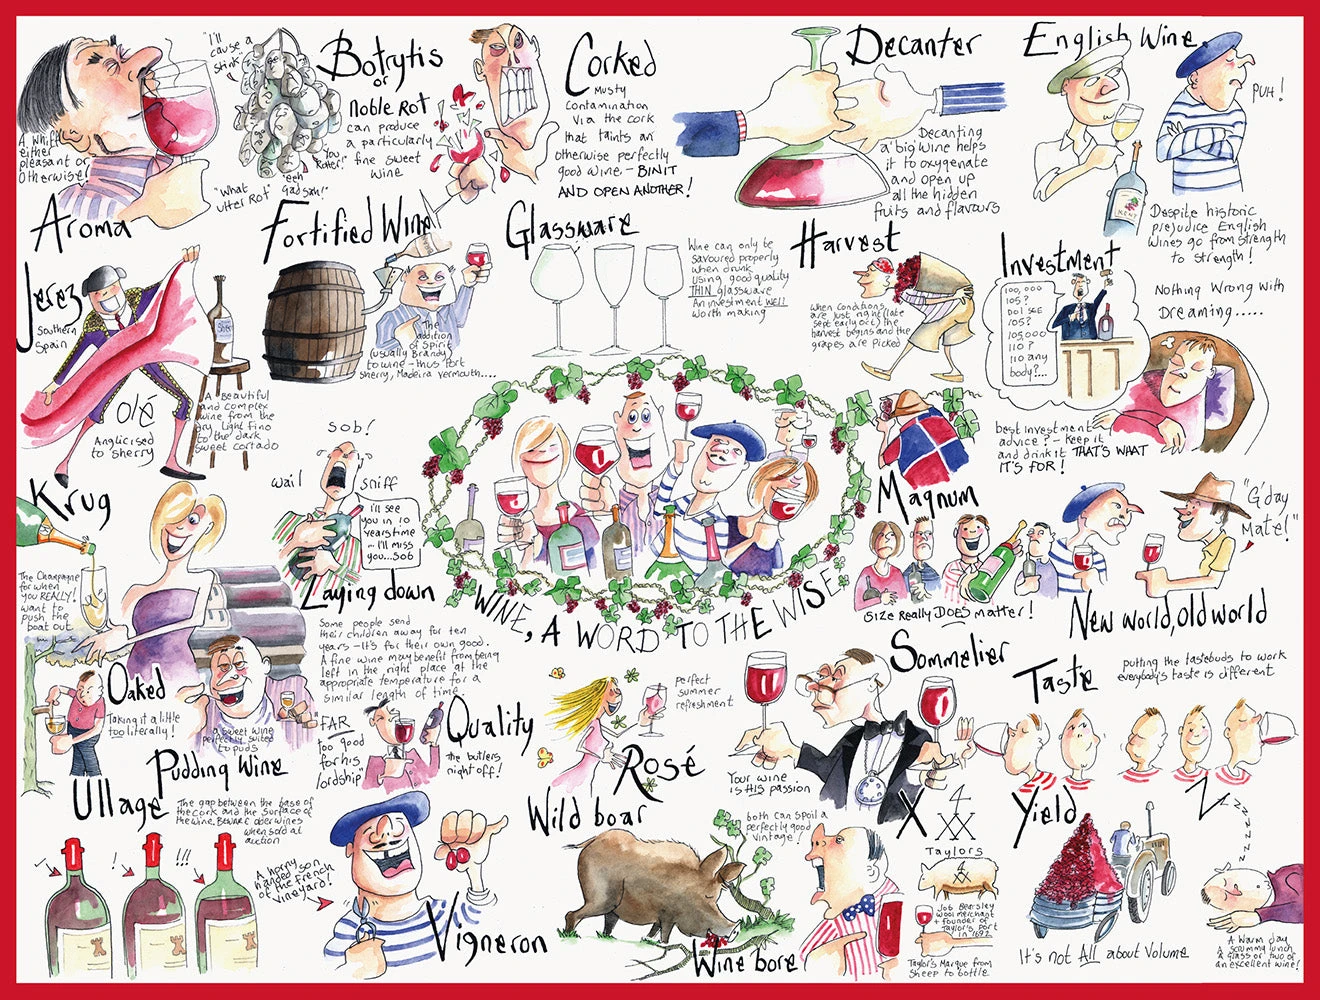 "I'll
cause a
stink"
A whiff
either
pleasant or
otherwise!
Aroma
Botrytis
or
noble rot
can produce
a particularly
fine sweet
wine
"You
Rotter!"
"eeh
Gadsam!"
"What
utter Rot"
Corked
Musty
Contamination
via the cork
that taints an
otherwise perfectly
good wine. - BIN IT
AND OPEN ANOTHER!
Decanter
Decanting
a 'big' wine helps
it to oxygenate
and open up
all the hidden
fruits and flavours
English Wine
PUH!
KENT
Despite historic
prejudice English
Wines go from strength
to strength!
Jerez
Southern
Spain
Olé
Anglicised
to sherry
A Beautiful
and complex
wine from the
dry light fino
to the dark
sweet cortado
Fortified Wine
The
addition
of Spirit
(usually Brandy)
to wine - thus Port
sherry, Madeira vermouth....
Glassware
Wine can only be
savoured properly
when drunk
using good quality
THIN glassware
An investment WELL
worth making
Harvest
when conditions
are just right (late
sept early oct) the
harvest begins and the
grapes are picked
Investment
100,000
105?
Do I see
105?
105,000
110?
110 any
body?...
Nothing Wrong with
Dreaming.....
best investment
advice? - keep it
and drink it THAT'S WHAT
IT'S FOR!
Krug
The Champagne
for when
you REALLY!
want to
push the
boat out
Sob!
wail
sniff
i'll see
you in 10
years time
- I'll miss
you...sob
Laying down
Some people send
their children away for ten
years - it's for their own good.
A fine wine may benefit from being
left in the right place at the
appropriate temperature for a
similar length of time.
WINE, A WORD TO THE WISE
Magnum
Size Really DOES matter!
"G'day
Mate!"
New world, Old world
Oaked
Taking it a little
too literally!
a sweet wine
perfectly suited
to puds
Pudding Wine
"FAR
too good
for his
lordship"
Quality
the butlers
night off!
perfect
summer
refreshment
Rosé
Sommelier
Your wine
is HIS passion
Taste
putting the tastebuds to work
everybody's taste is different
Ullage
The gap between the base of
the cork and the surface of
the wine, Beware older wines
when sold at
auction
!
!!!
A horny
handed son
of the French
vineyard!
Vigneron
Wild boar
both can spoil a
perfectly good
vintage!
Wine bore
X
4
XX
Taylors
Job Bearsley
wool merchant
+ founder of
Taylor's Port
in 1692
Taylor's Marque from
sheep to bottle
Yield
It's not All about Volume
Zzzzzzz
A warm day
A scrummy lunch
A glass or two of
an excellent wine!